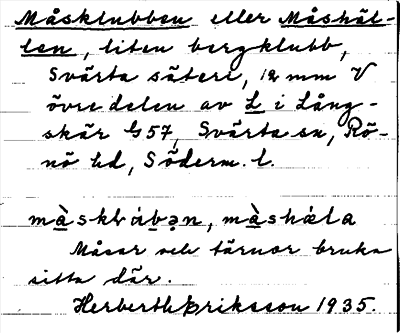 Måsklubben eller Måshäl-
len, liten bergklubb,
Svärta säteri, 12 mm V
övre delen av L i Lång-
skär G57, Svärta sn, Rö-
nö hd, Söderm. l.
màsklúbən, màshǽla
Måsar och tärnor bruka
sitta där.
Herberth Eriksson 1935.